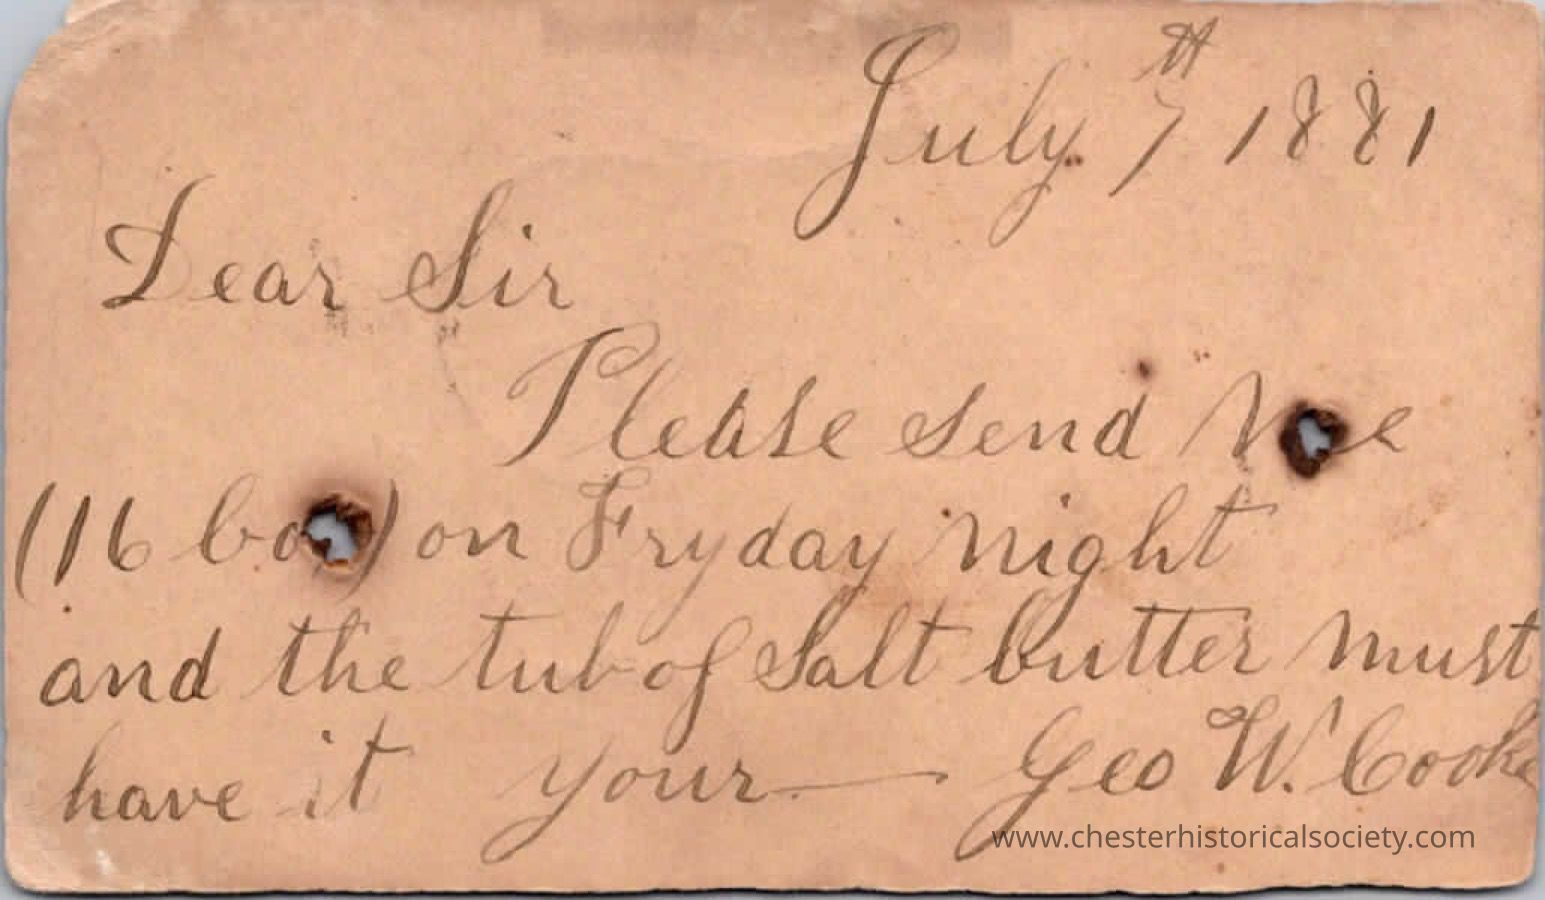 July 7th 1881
Dear Sir
Please send
(16 on Fryday night
and the tub of Salt butter must
have it your Geo W. Cooke
www.chesterhistoricalsociety.com